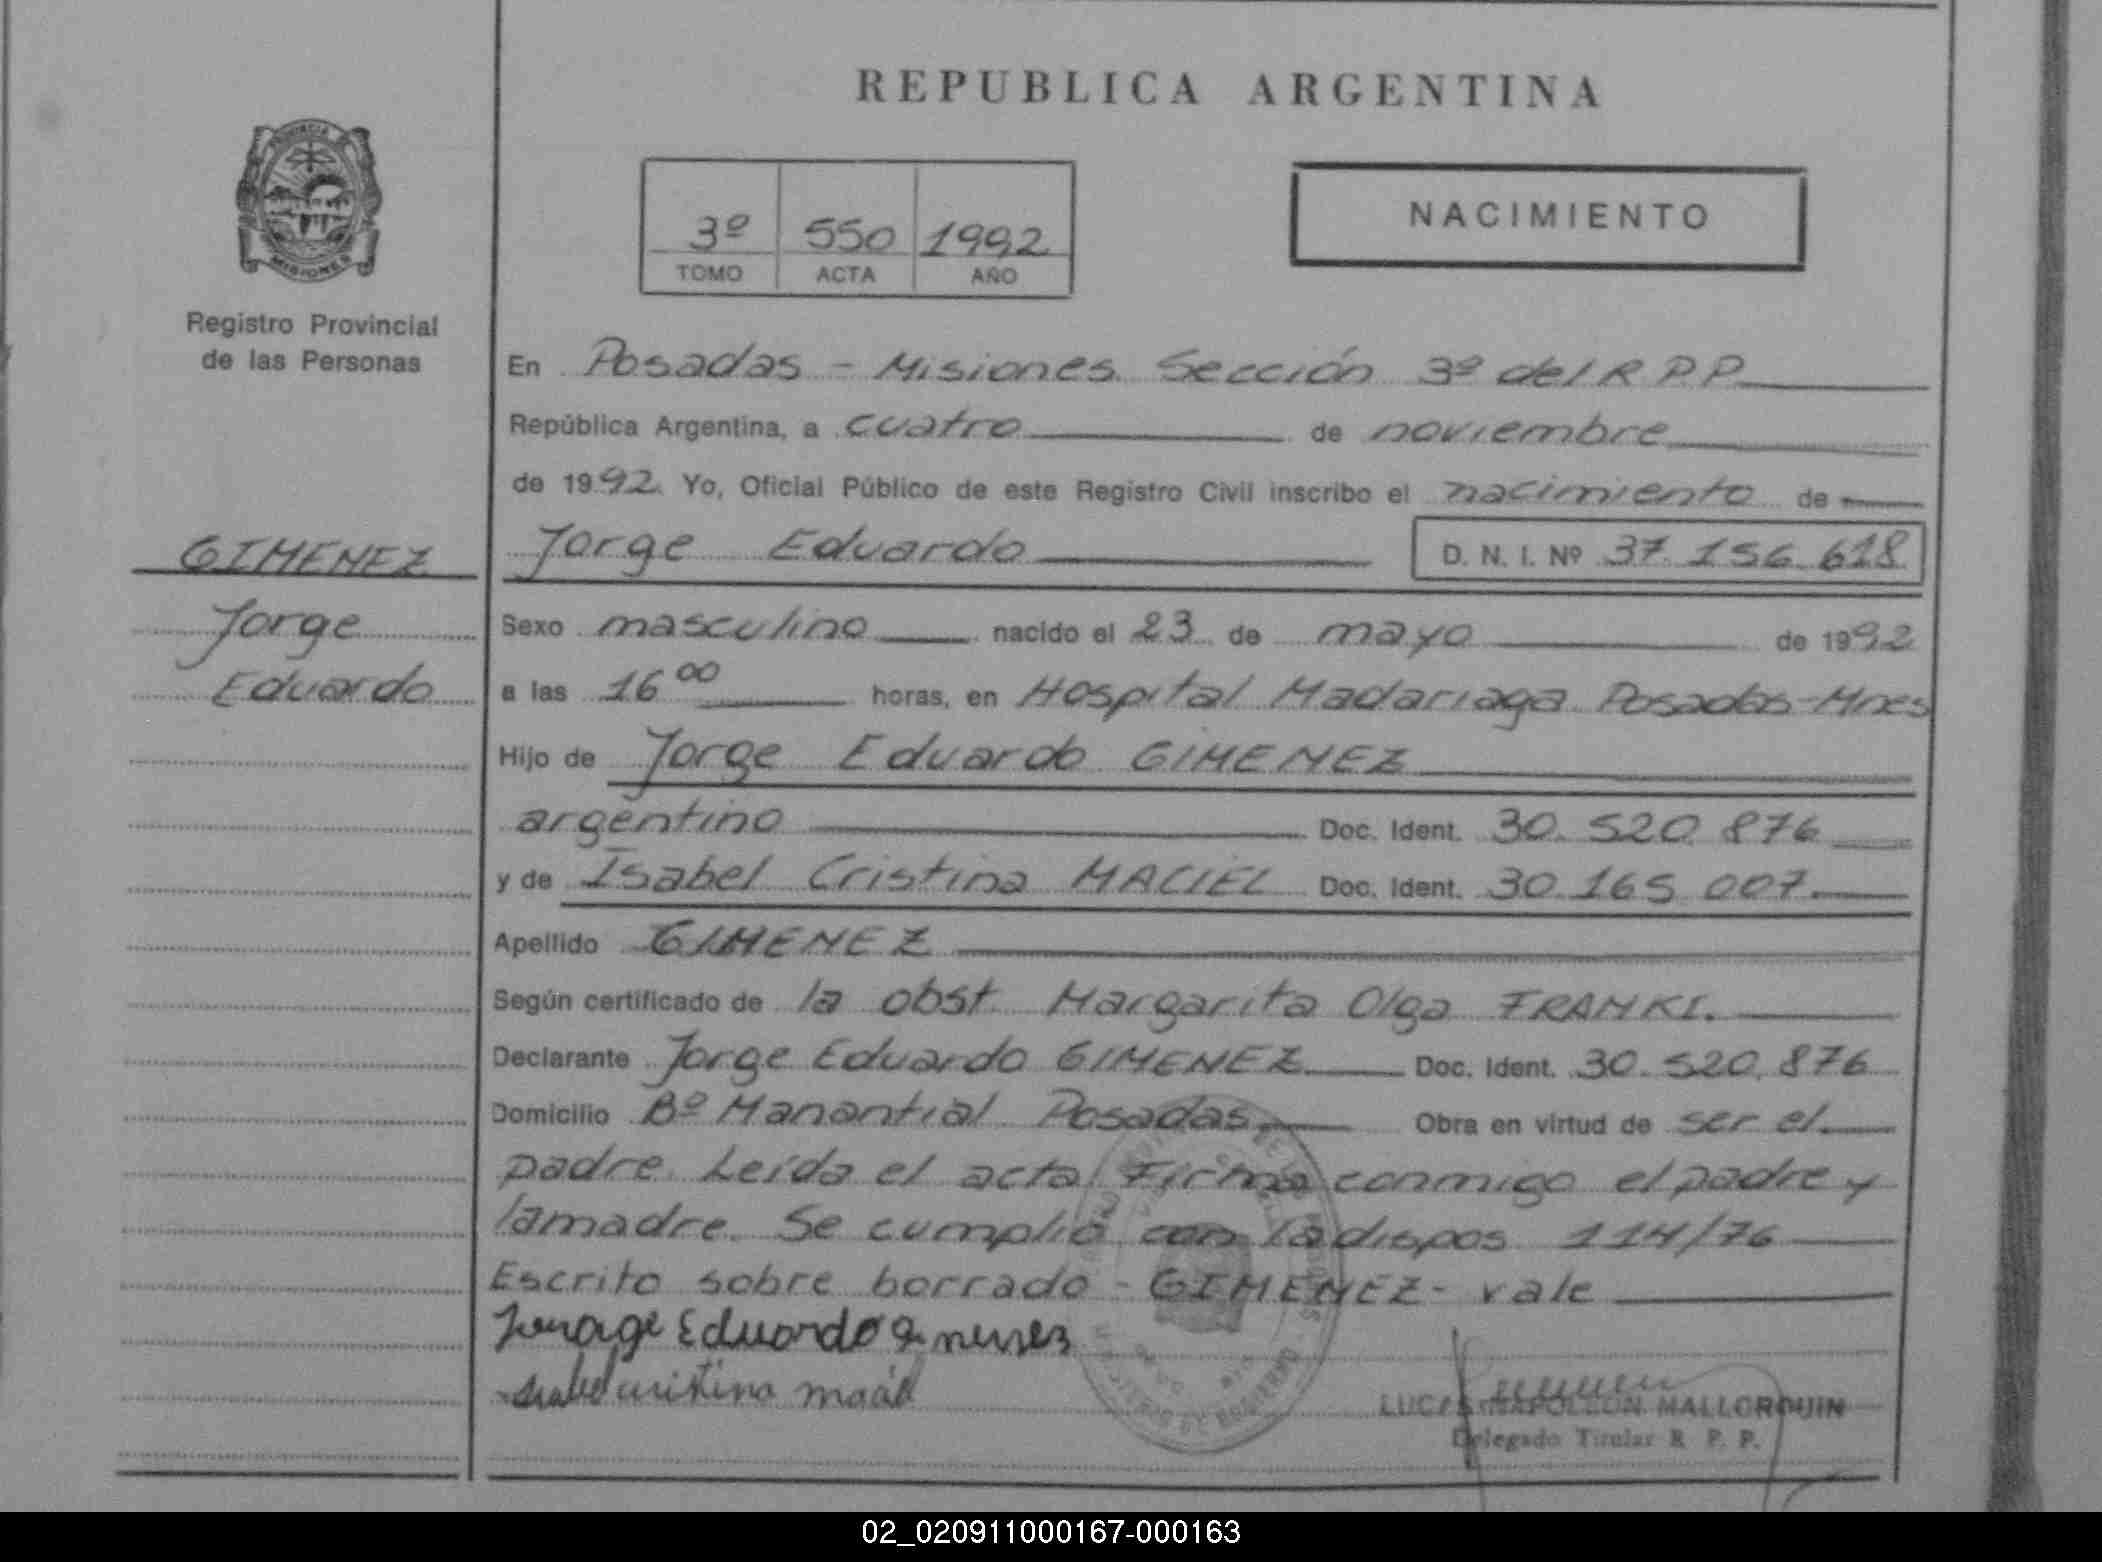 REPUBLICA ARGENTINA
MISIONES
Registro Provincial
de las Personas
3º 550 1992
TOMO ACTA AÑO
NACIMIENTO
En Posadas - Misiones Sección 3º del R P P
República Argentina, a cuatro de noviembre
de 1992 Yo, Oficial Público de este Registro Civil inscribo el nacimiento de
GIMENEZ
Jorge
Eduardo
Jorge Eduardo D. N. I. Nº 37.156.618
Sexo masculino nacido el 23 de mayo de 1992
a las 16⁰⁰ horas, en Hospital Madariaga Posadas-Mnes
Hijo de Jorge Eduardo GIMENEZ
argentino Doc. Ident. 30.520.876
y de Isabel Cristina MACIEL Doc. Ident. 30.165.007.
Apellido GIMENEZ
Según certificado de la obst. Margarita Olga FRANKI.
Declarante Jorge Eduardo GIMENEZ Doc. Ident. 30.520.876
Domicilio Bº Manantial Posadas. Obra en virtud de ser el
padre. Leída el acta Firma conmigo el padre y
la madre. Se cumplió con la dispos 114/76
Escrito sobre borrado - GIMENEZ - vale
Eduardo
cristina
LUCAS NAPOLEON MALLORQUIN
Delegado Titular R. P. P.
02_020911000167-000163